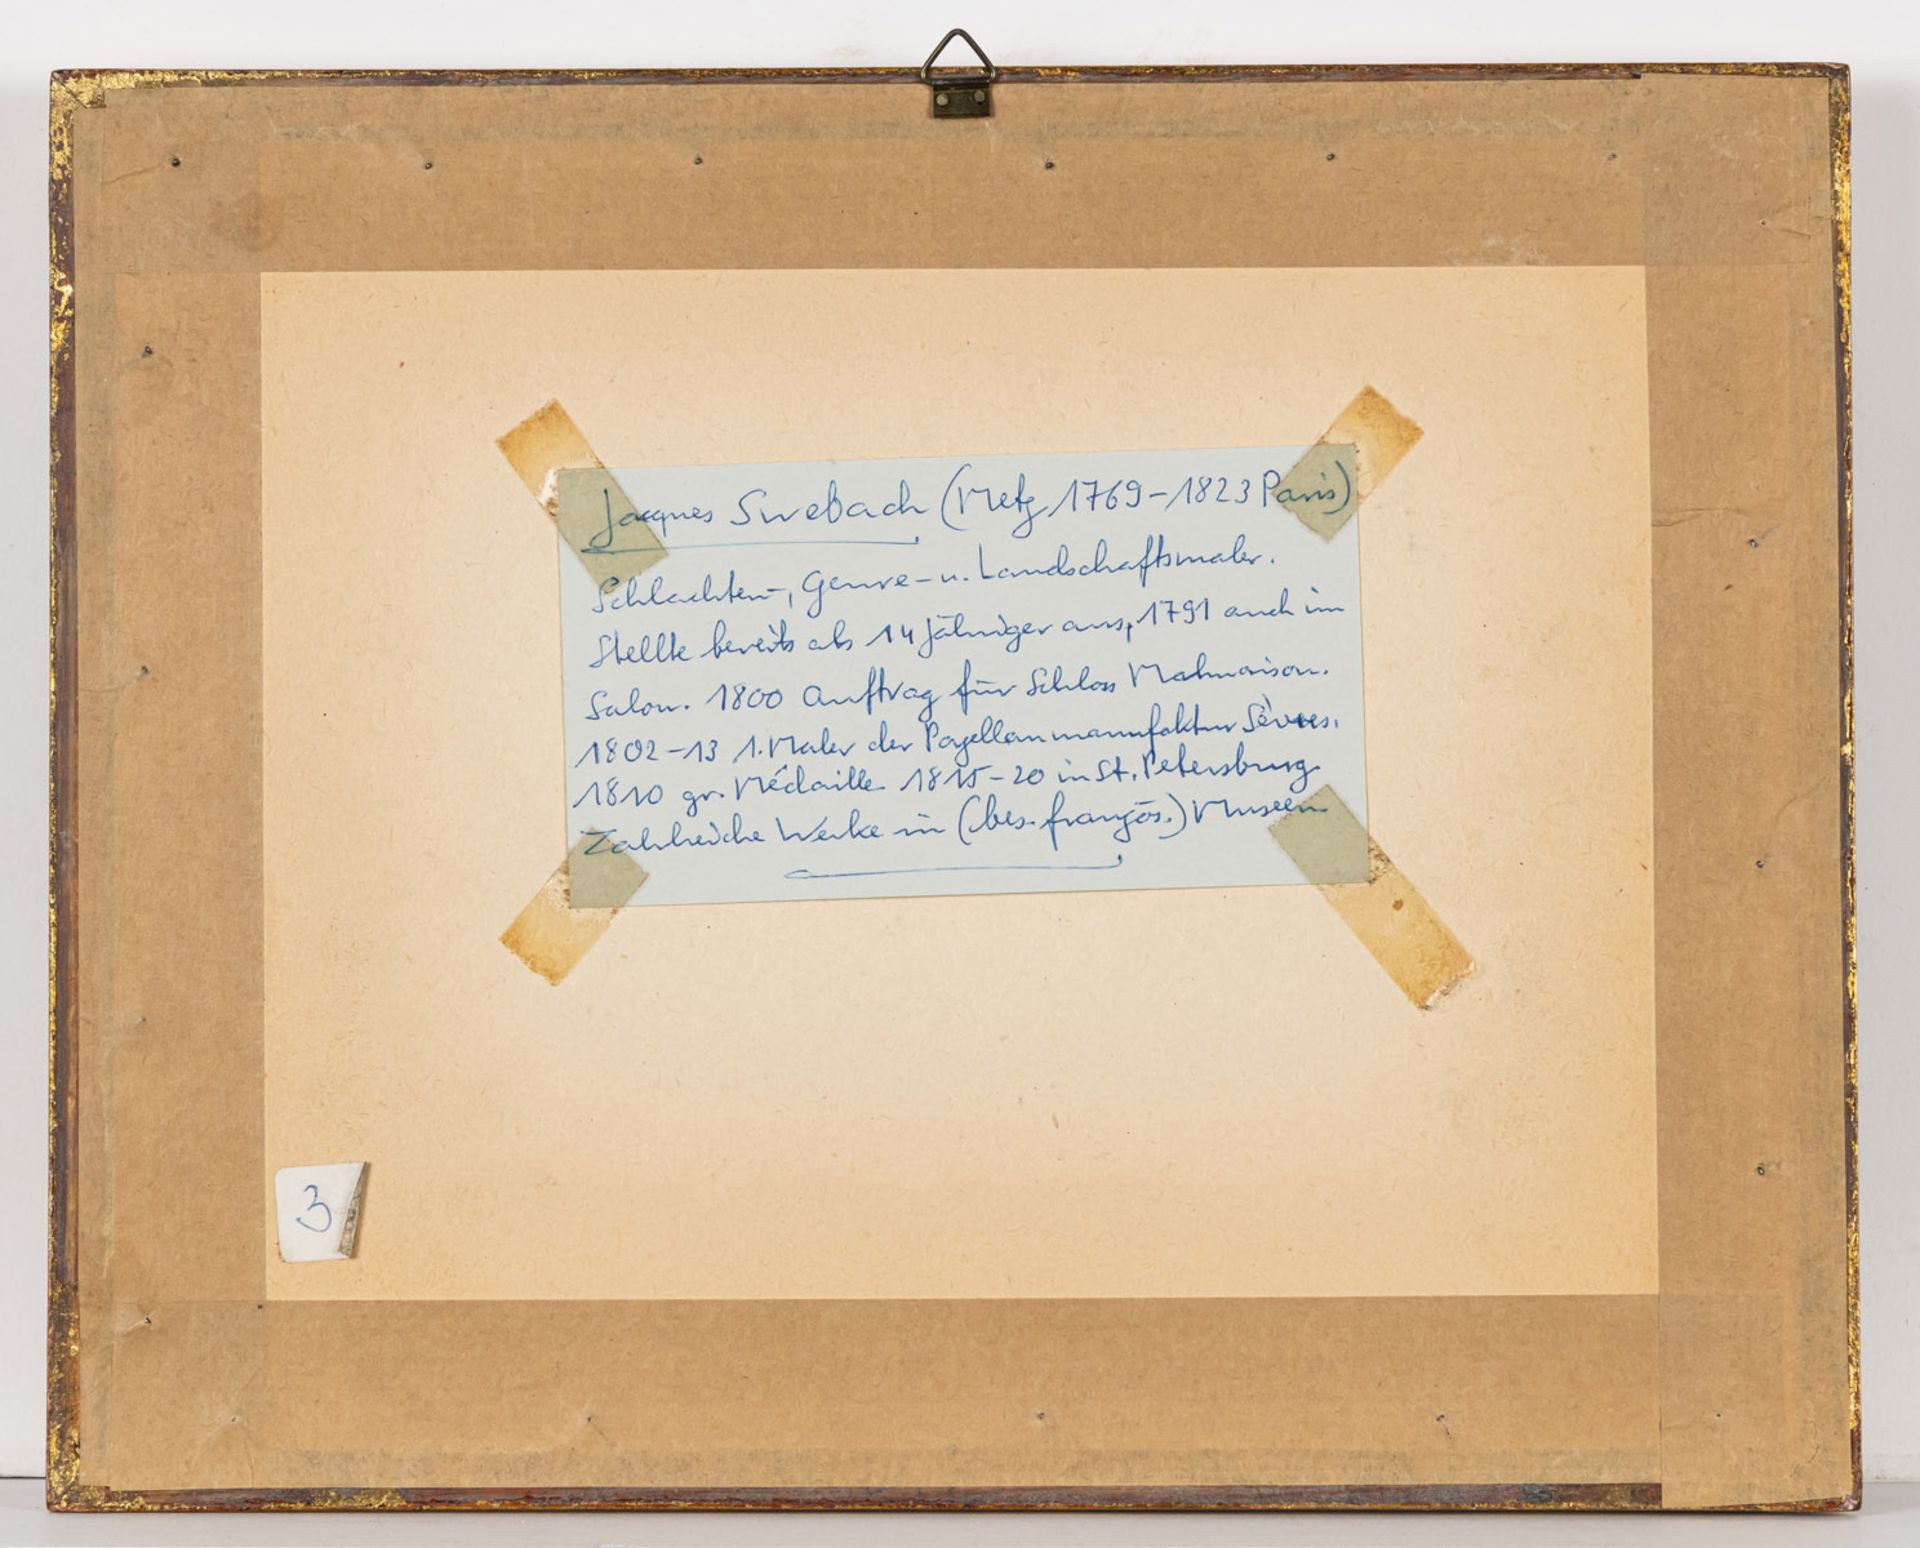 Jacques Swebach (Metz 1769-1823 Paris)
Schlachten-, Genre- u. Landschaftsmaler.
Stellte bereits als 14 jähriger aus, 1791 auch im
Salon. 1800 Auftrag für Schloss Malmaison.
1802-13 1. Maler der Porzellanmanufaktur Sèvres.
1810 gr. Médaille. 1815-20 in St. Petersburg
Zahlreiche Werke in (bes. französ.) Museen
3